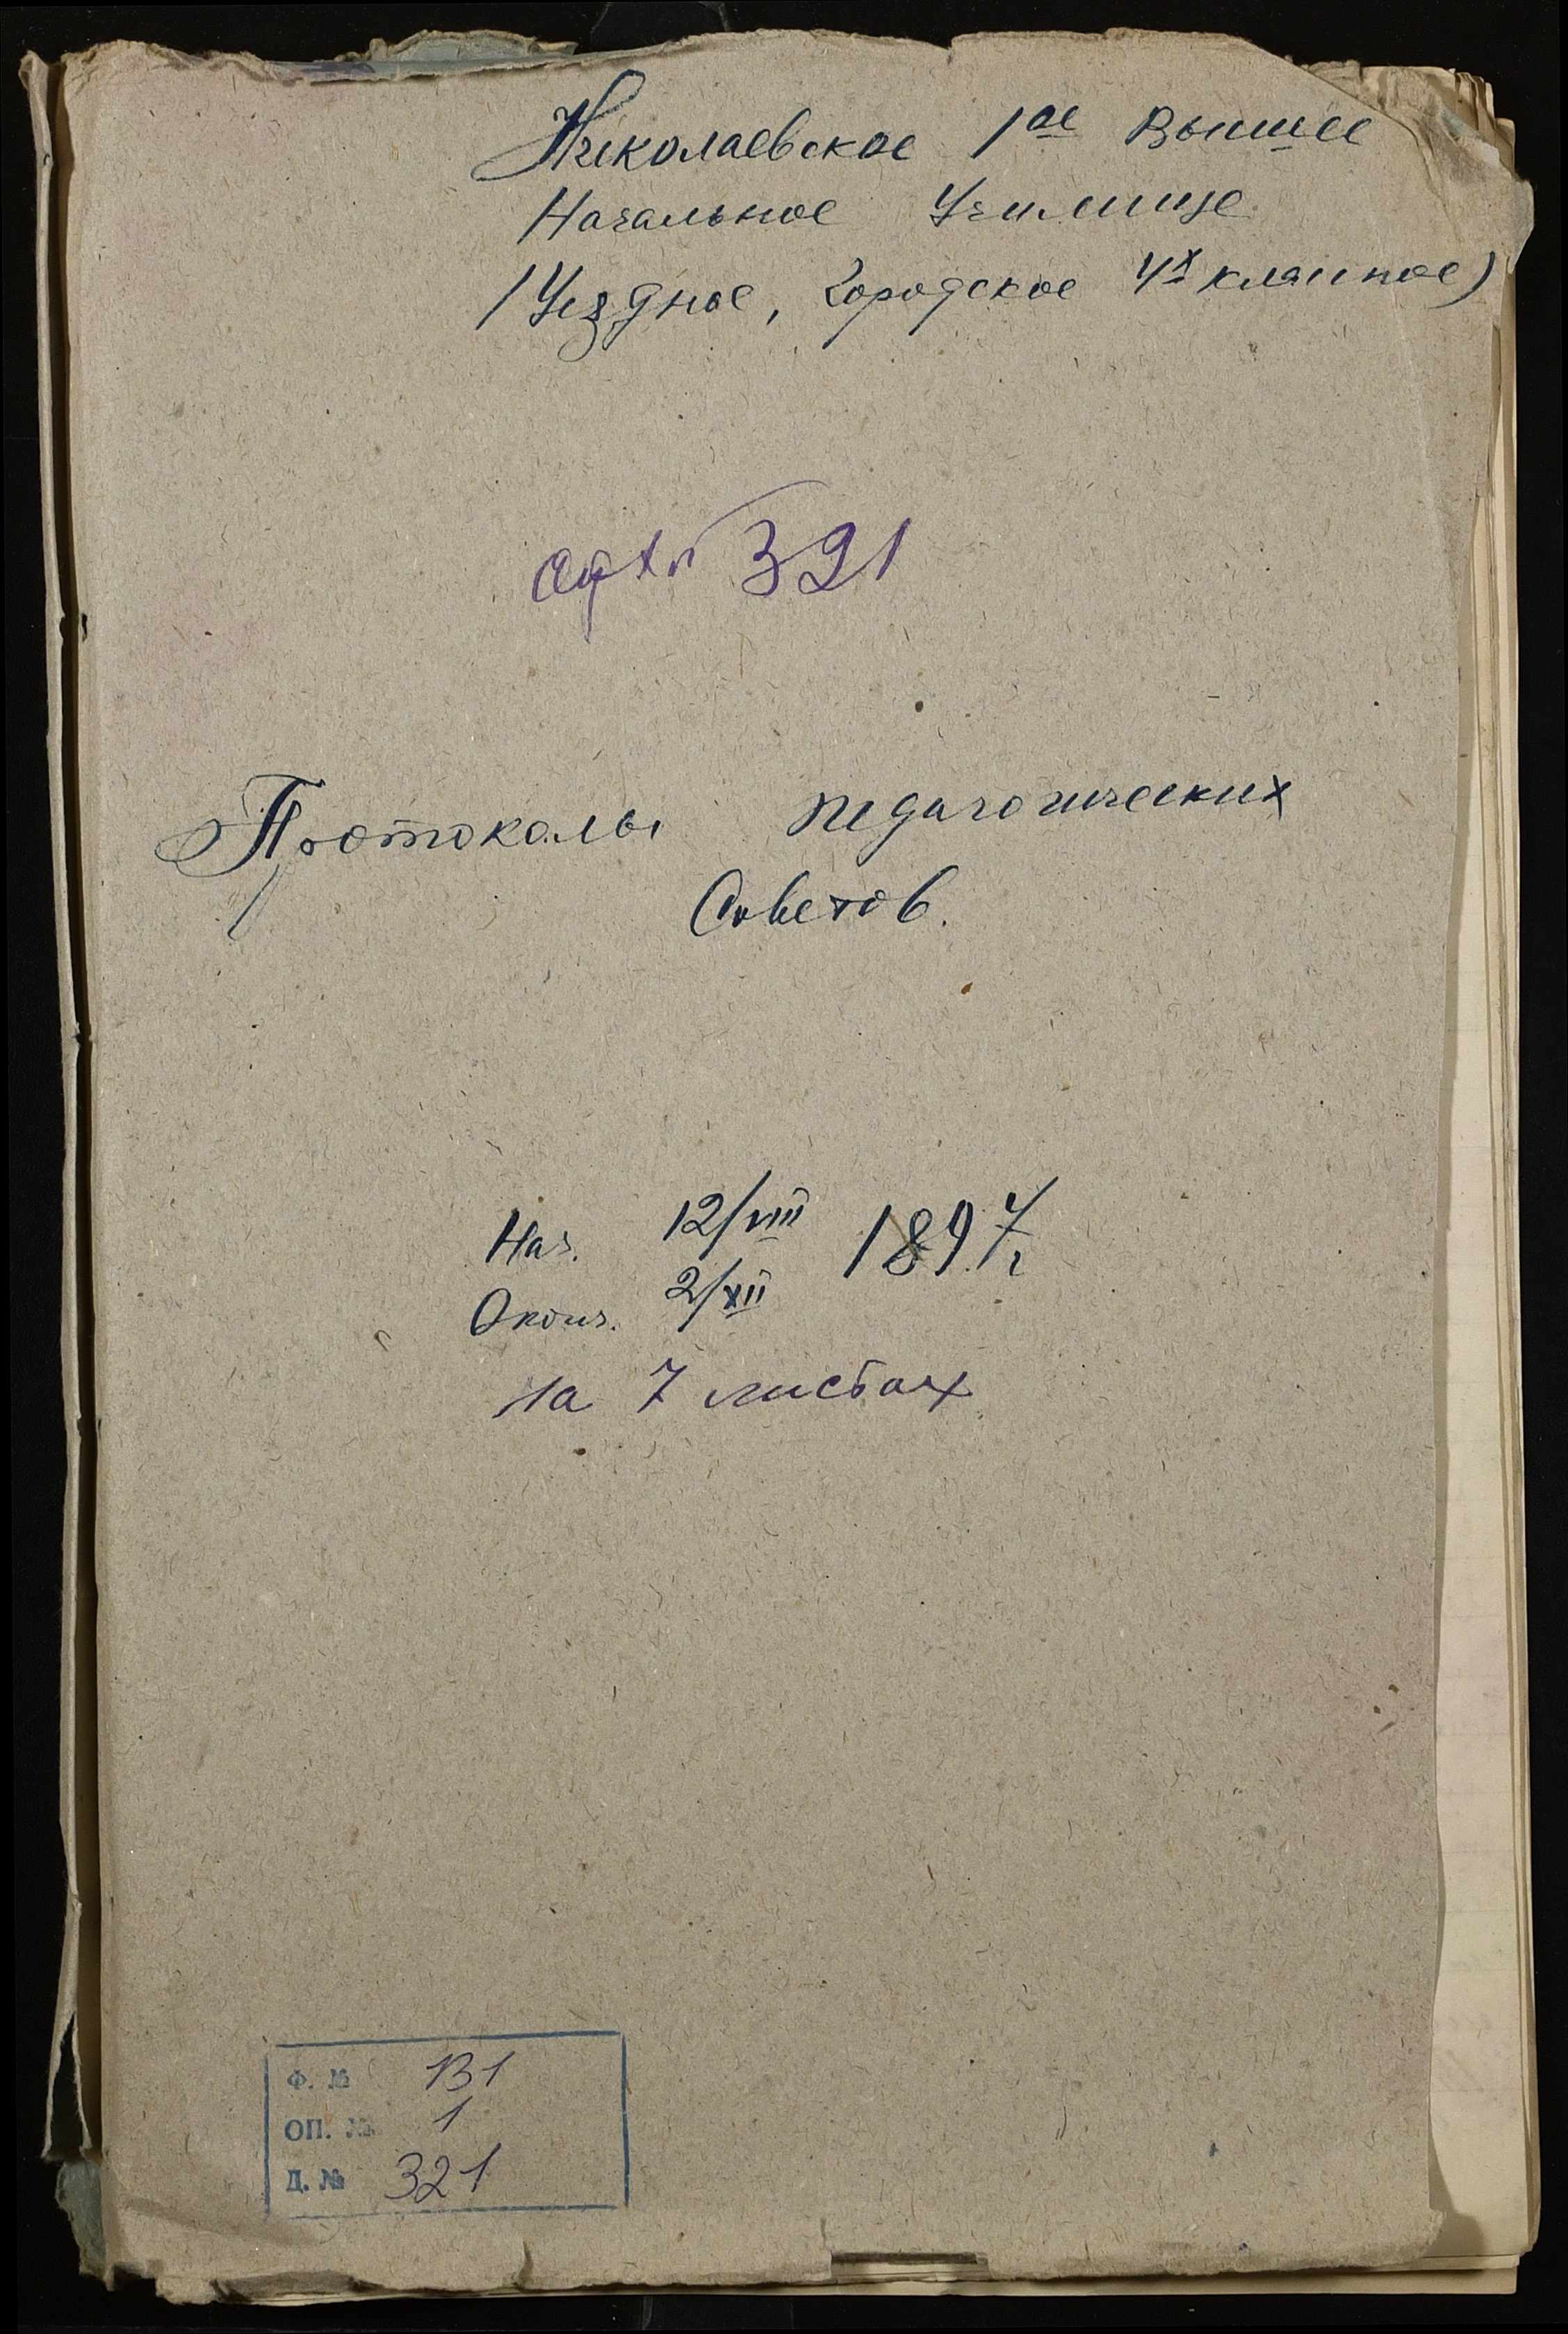 Николаевское 1ое Высшее
Начальное Училище
(Уездное, Городское 4х классное)
321
Протоколы педагогических
Советов.
Нач. 12/VIII 1897 г.
Оконч. 2/XII
на 7 листах
Ф. № 131
ОП. № 1
Д. № 321